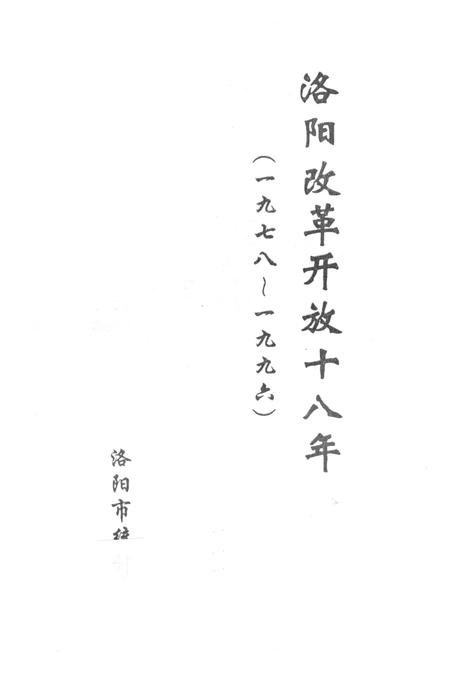 洛阳改革开放十八年
(一九七八~一九九六)
洛阳市